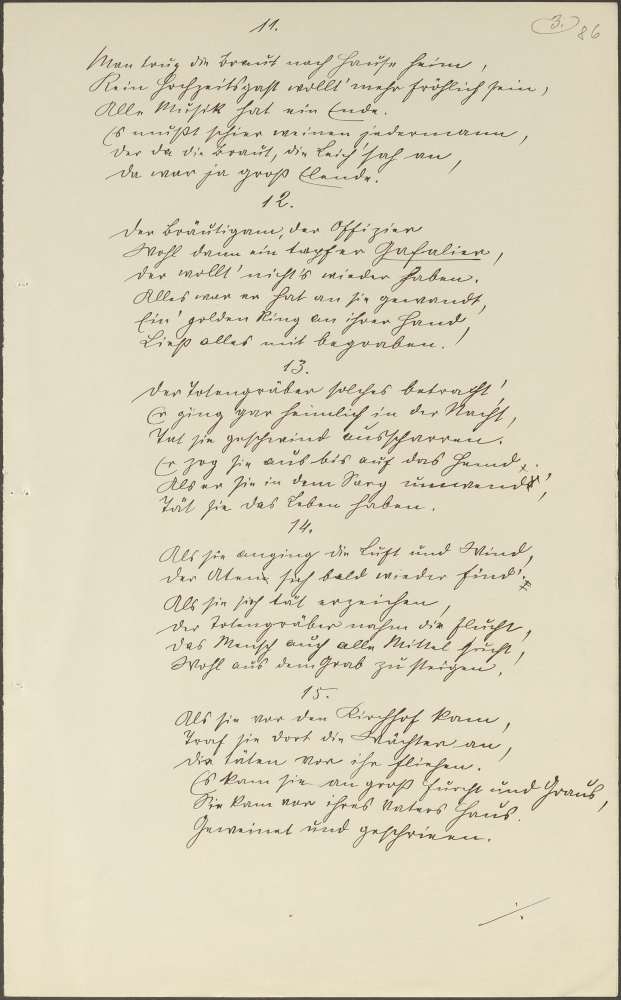 11.
3.
86
Man trug die Braut nach Hause heim,
Kein Hochzeitsgast wollt' mehr fröhlich sein,
Alle Musik hat ein Ende.
Es mußt schier weinen jedermann,
Der da die Braut, die Leich' sah an,
Da war ja groß Elende.
12.
Der Bräutigam, der Offizier
Wohl dann ein tapfer Gafalier,
Der wollt' nichts wieder haben.
Alles war er hat an sie gewandt,
Ein' golden Ring an ihrer Hand
Ließ alles mit begraben.!
13.
Der Totengräber solches betracht',
Er ging gar heimlich in der Nacht,
Tat sie geschwind ausscharren.
Er zog sie aus bis auf das Hemd,
Als er sie in dem Sarg umwend',
Tät sie das Leben haben.
14.
Als sie anging die Luft und Wind,
Der Atem sich bald wieder find'.
Als sie sich tät erzeichen,
Der Totengräber nahm die Flucht,
Das Mensch auch alle Mittel sucht,
Wohl aus dem Grab zu steigen.!
15.
Als sie vor den Kirchhof kam,
Traf sie dort die Wächter an,
Die täten vor ihr fliehen.
Es kam sie an groß Furcht und Graus,
Sie kam vor ihres Vaters Haus.
Geweinet und geschrieen.
./.